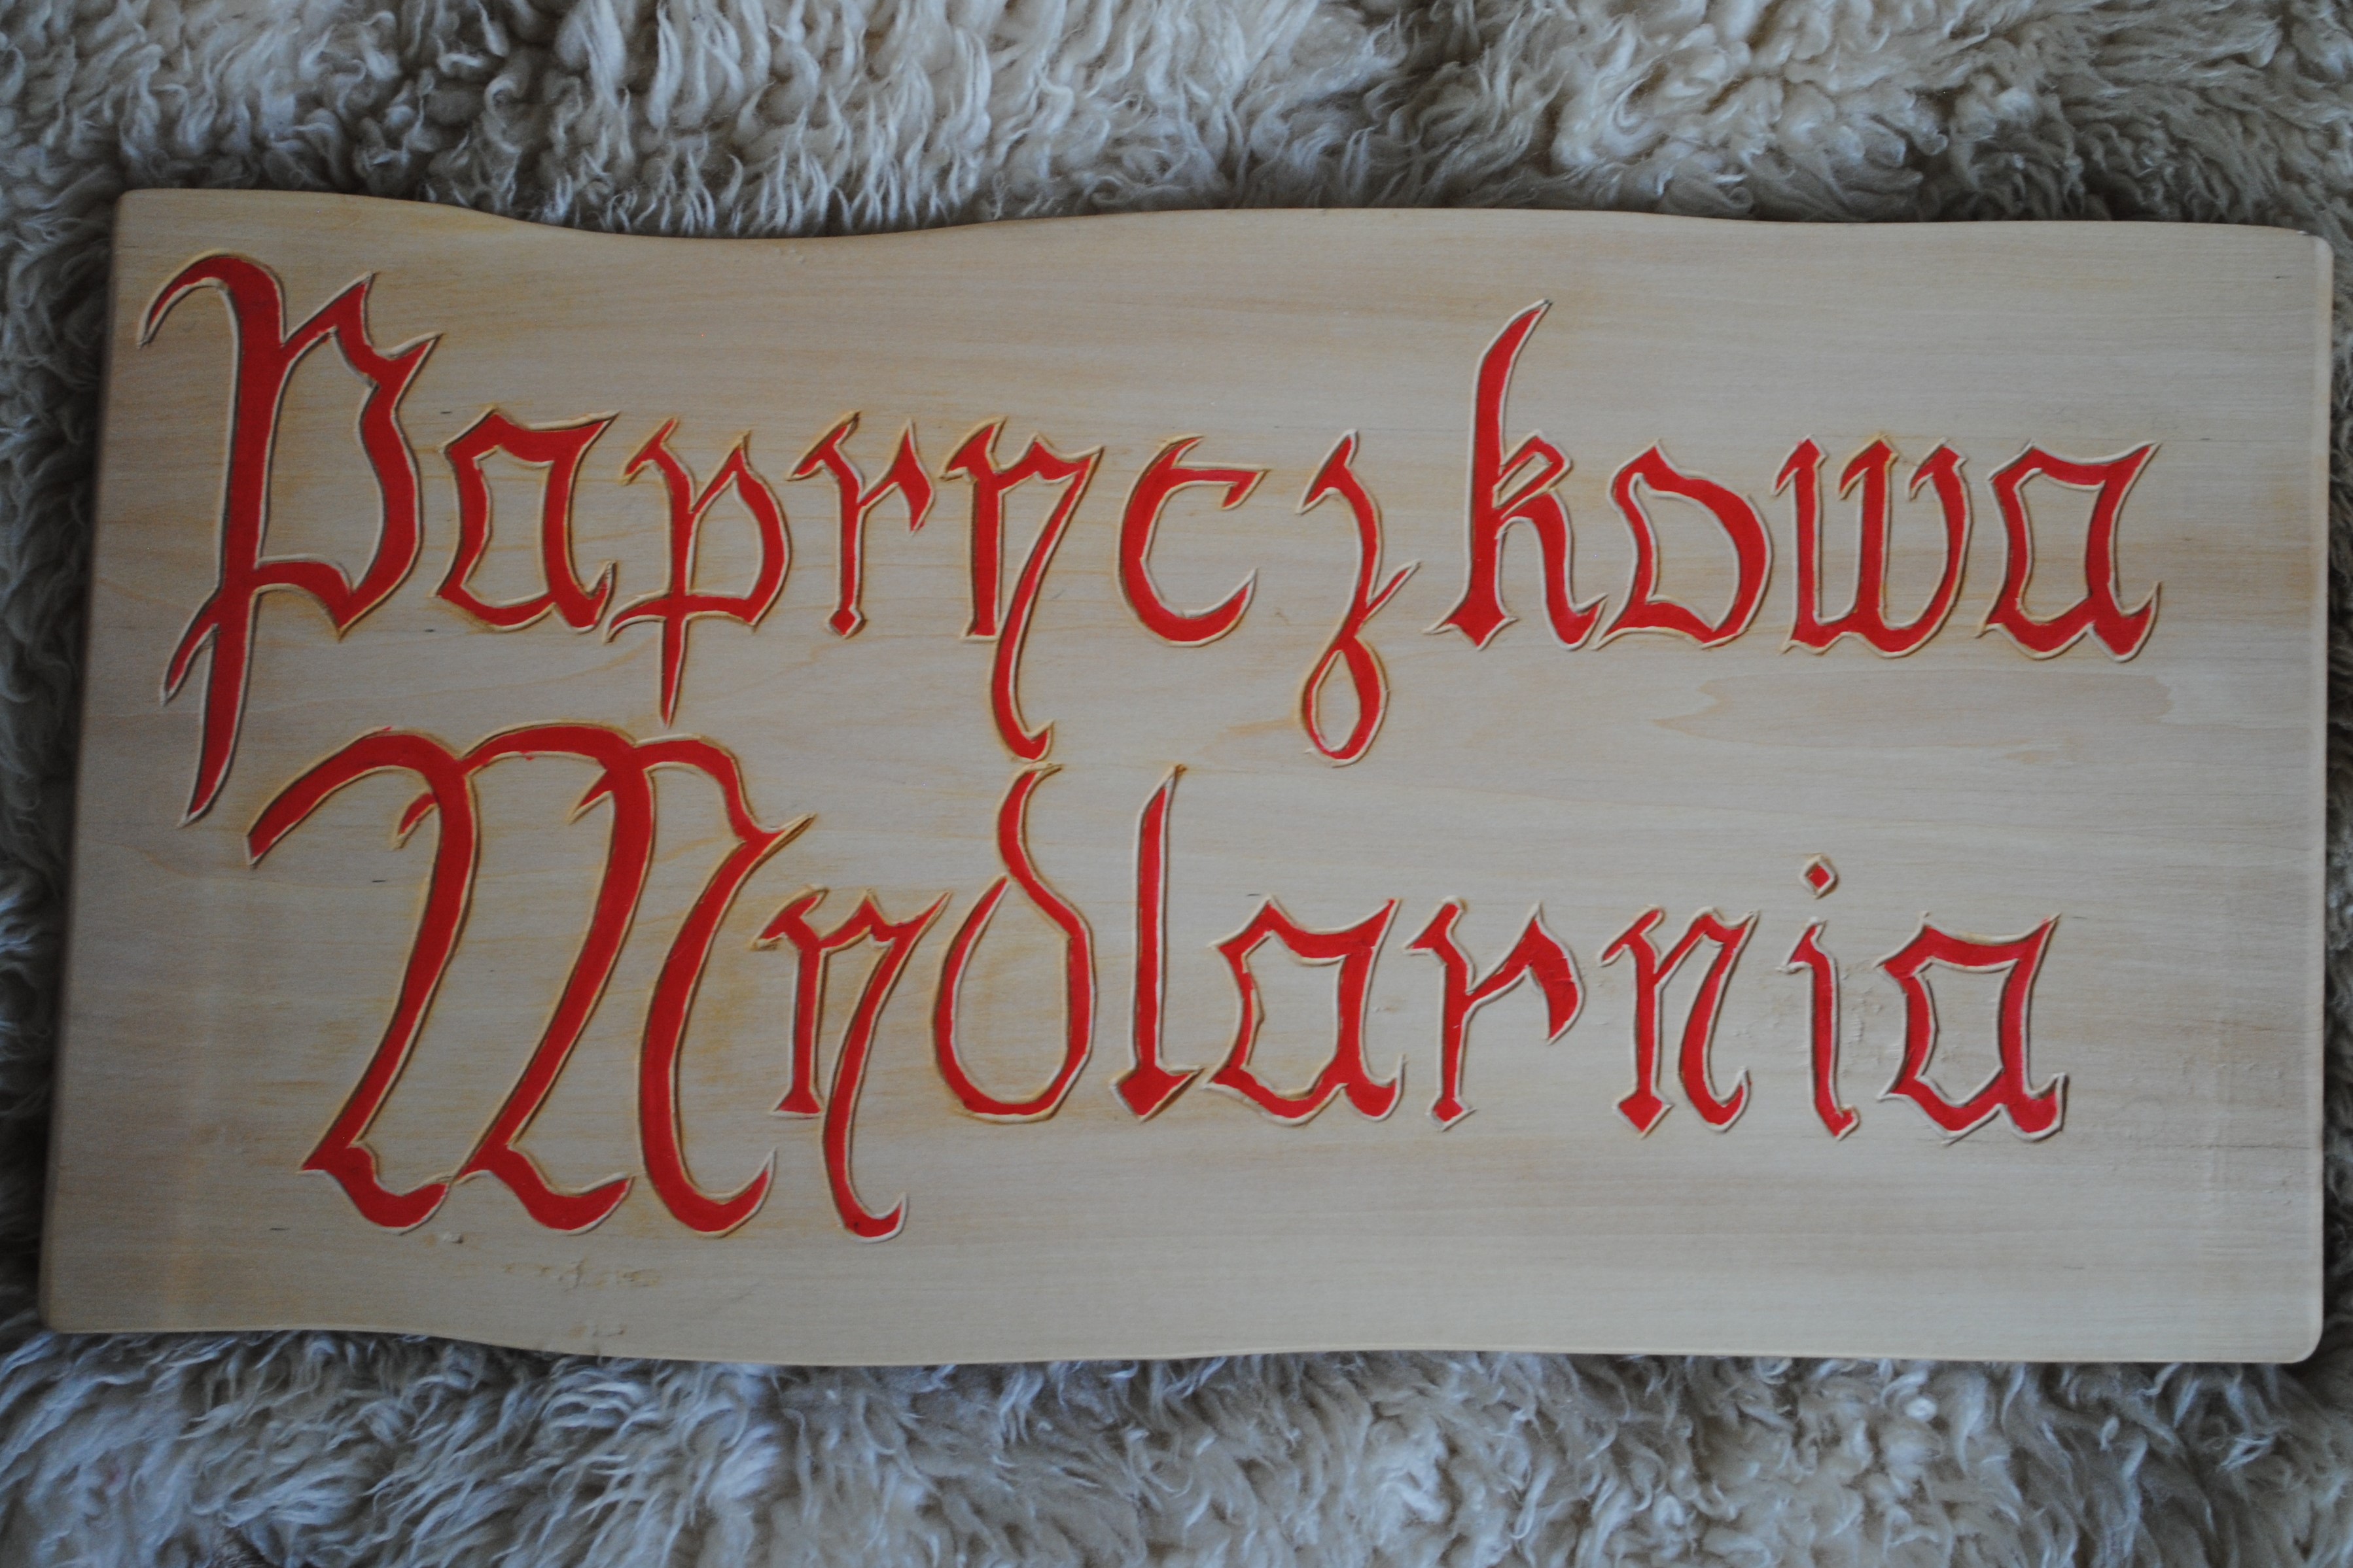 Papryczkowa
Mydlarnia